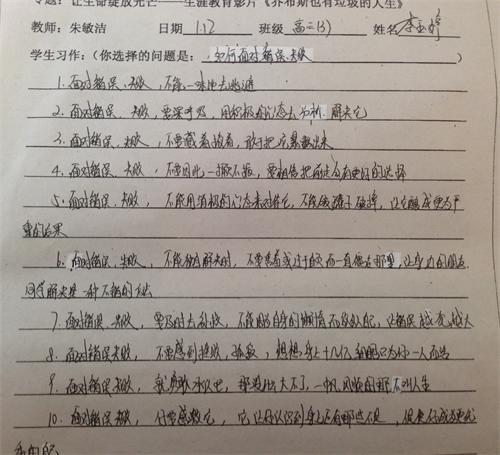 专题：让生命绽放光芒——生涯教育影片《乔布斯也有垃圾的人生》
教师：朱敏洁 日期 1.12 班级 高二(3) 姓名
学生习作：（你选择的问题是：如何面对错误、失败
1. 面对错误、失败，不能一味地去逃避
2. 面对错误、失败，要深呼吸，用积极的心态去分析、解决它
3. 面对错误、失败，不要藏着掖着，敢于把它暴露出来
4. 面对错误、失败，不要因此一蹶不振，要相信把前进会有更好的选择
5. 面对错误、失败，不能用消极的心态来对待它，不能破罐子破摔，让它酿成更为严
重的后果
6. 面对错误、失败，不能独自解决时，不要害羞或过于自而一直傻在那里，让身边的朋友
同学解决是一种不错的方法
7. 面对错误、失败，要及时去补救，不能因为自身的懒惰而放任，让错误越变越大
8. 面对错误失败，不要感到挫败，孤寂，想想身上十几亿细胞只为你一人而活
9. 面对错误、失败，我勇敢承认吧，那没什么大不了，一帆风顺的那不叫人生
10. 面对错误、失败，你要感激它，它让你认识到身上还有哪些不足，促使你成为更优